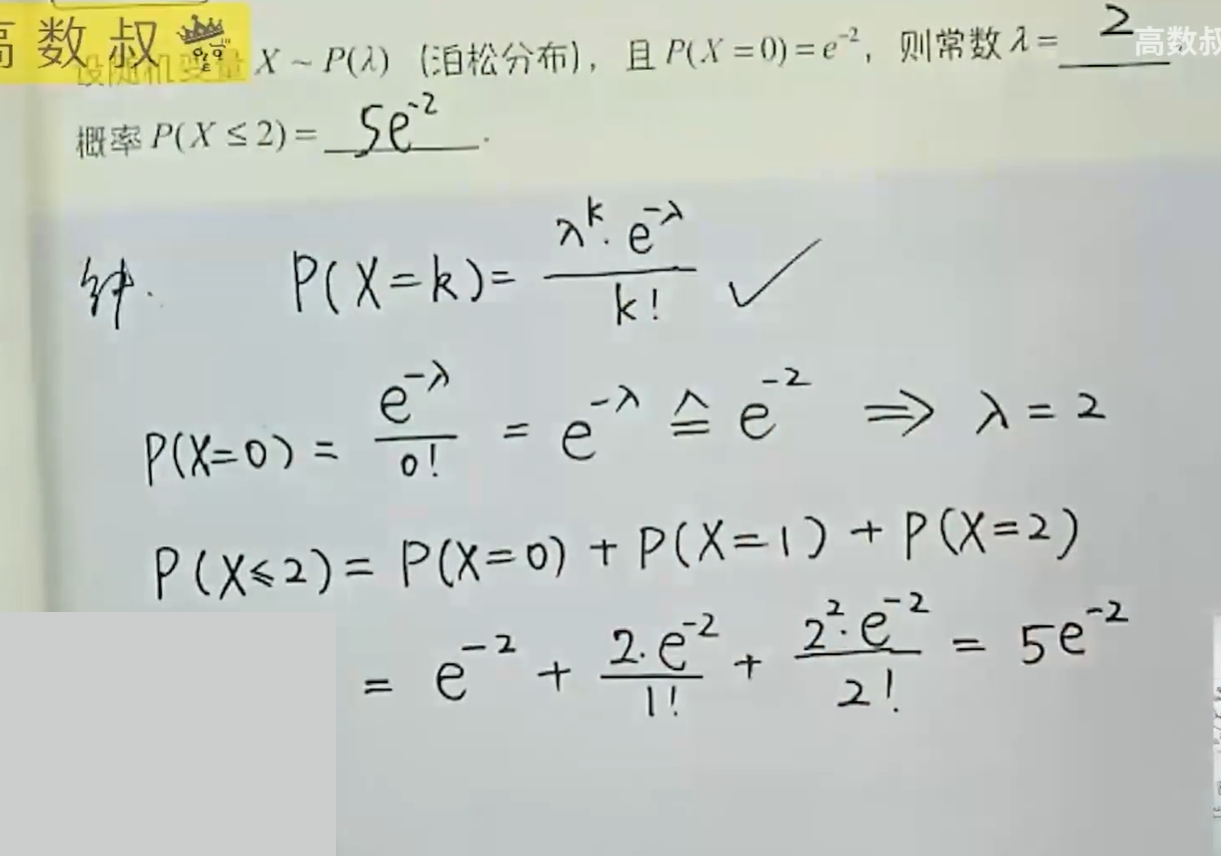 高数叔
设随机变量 X ~ P(λ) (泊松分布), 且 P(X = 0) = e⁻², 则常数 λ = 2 高数叔
概率 P(X ≤ 2) = 5e⁻² .
解. P(X=k) = (λᵏ·e^(-λ))/(k!) ✓
P(X=0) = (e^(-λ))/(0!) = e^(-λ) ≙ e⁻² ⇒ λ = 2
P(X≤2) = P(X=0) + P(X=1) + P(X=2)
= e⁻² + (2·e⁻²)/(1!) + (2²·e⁻²)/(2!) = 5e⁻²